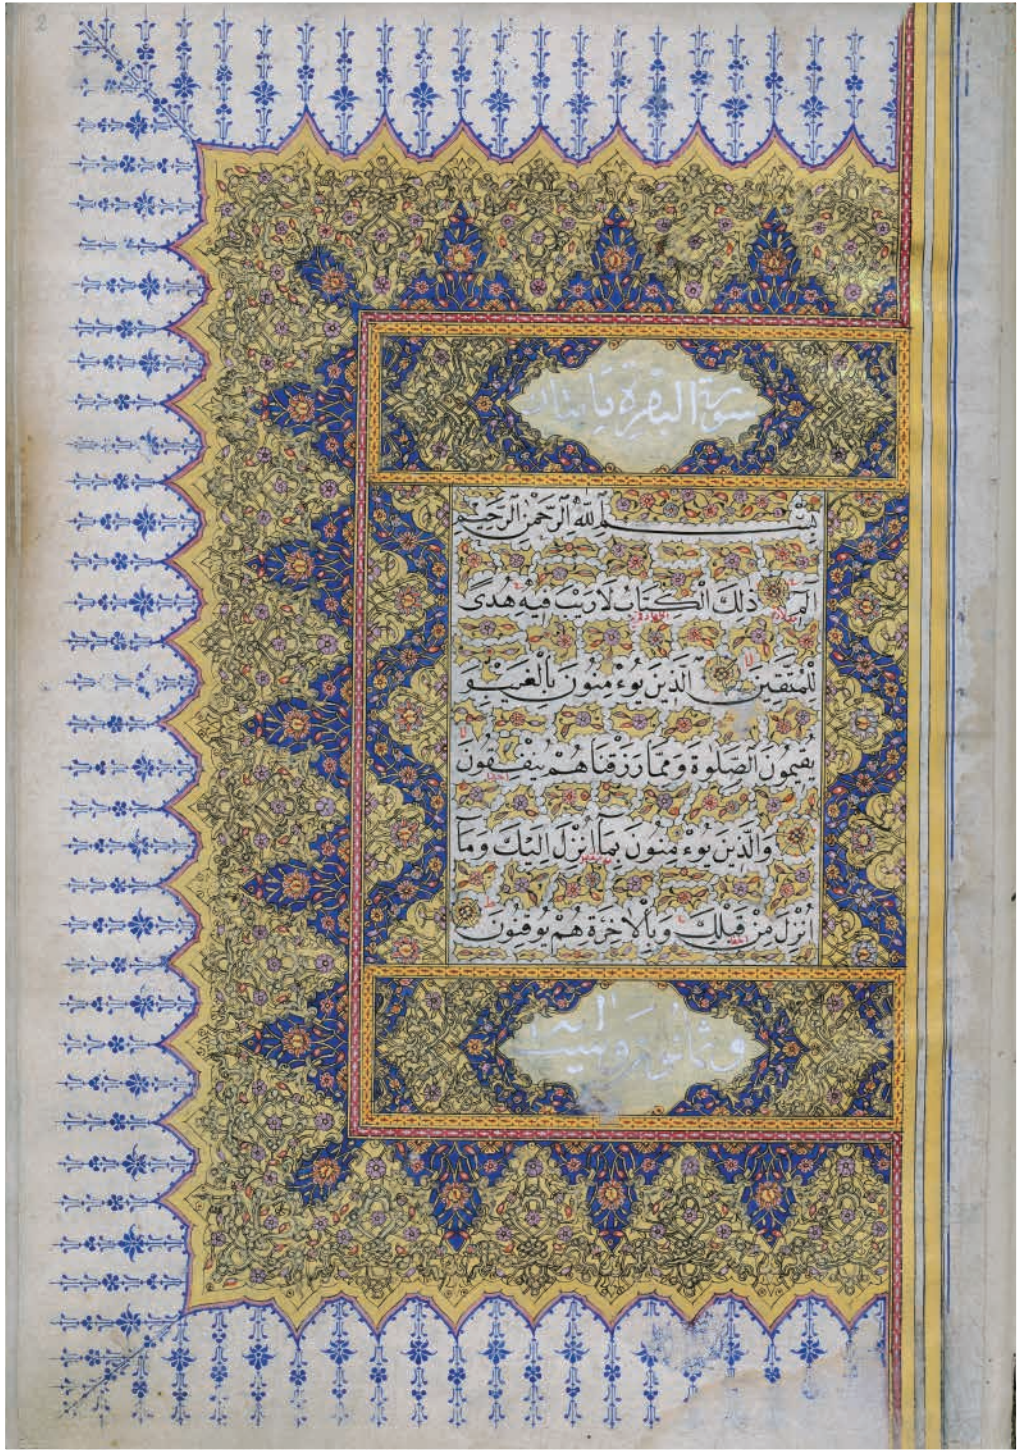 2
سورة البقرة مايتان
بِسْمِ اللّٰهِ الرَّحْمٰنِ الرَّحِيمِ
الم ذٰلِكَ الْكِتَابُ لَا رَيْبَ فِيهِ هُدًى
لِلْمُتَّقِينَ الَّذِينَ يُوءْمِنُونَ بِالْغَيْبِ وَ
يُقِيمُونَ الصَّلٰوةَ وَمِمَّا رَزَقْنَاهُمْ يُنْفِقُونَ
وَالَّذِينَ يُوءْمِنُونَ بِمَا اُنْزِلَ اِلَيْكَ وَمَا
اُنْزِلَ مِنْ قَبْلِكَ وَبِالْاٰخِرَةِ هُمْ يُوقِنُونَ
وثمانون وست اية